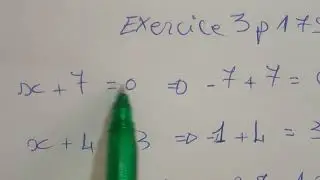 Exercice 3 p 179
x + 7 = 0 => -7 + 7 =
x + 4 3 => -1 + 4 = 3